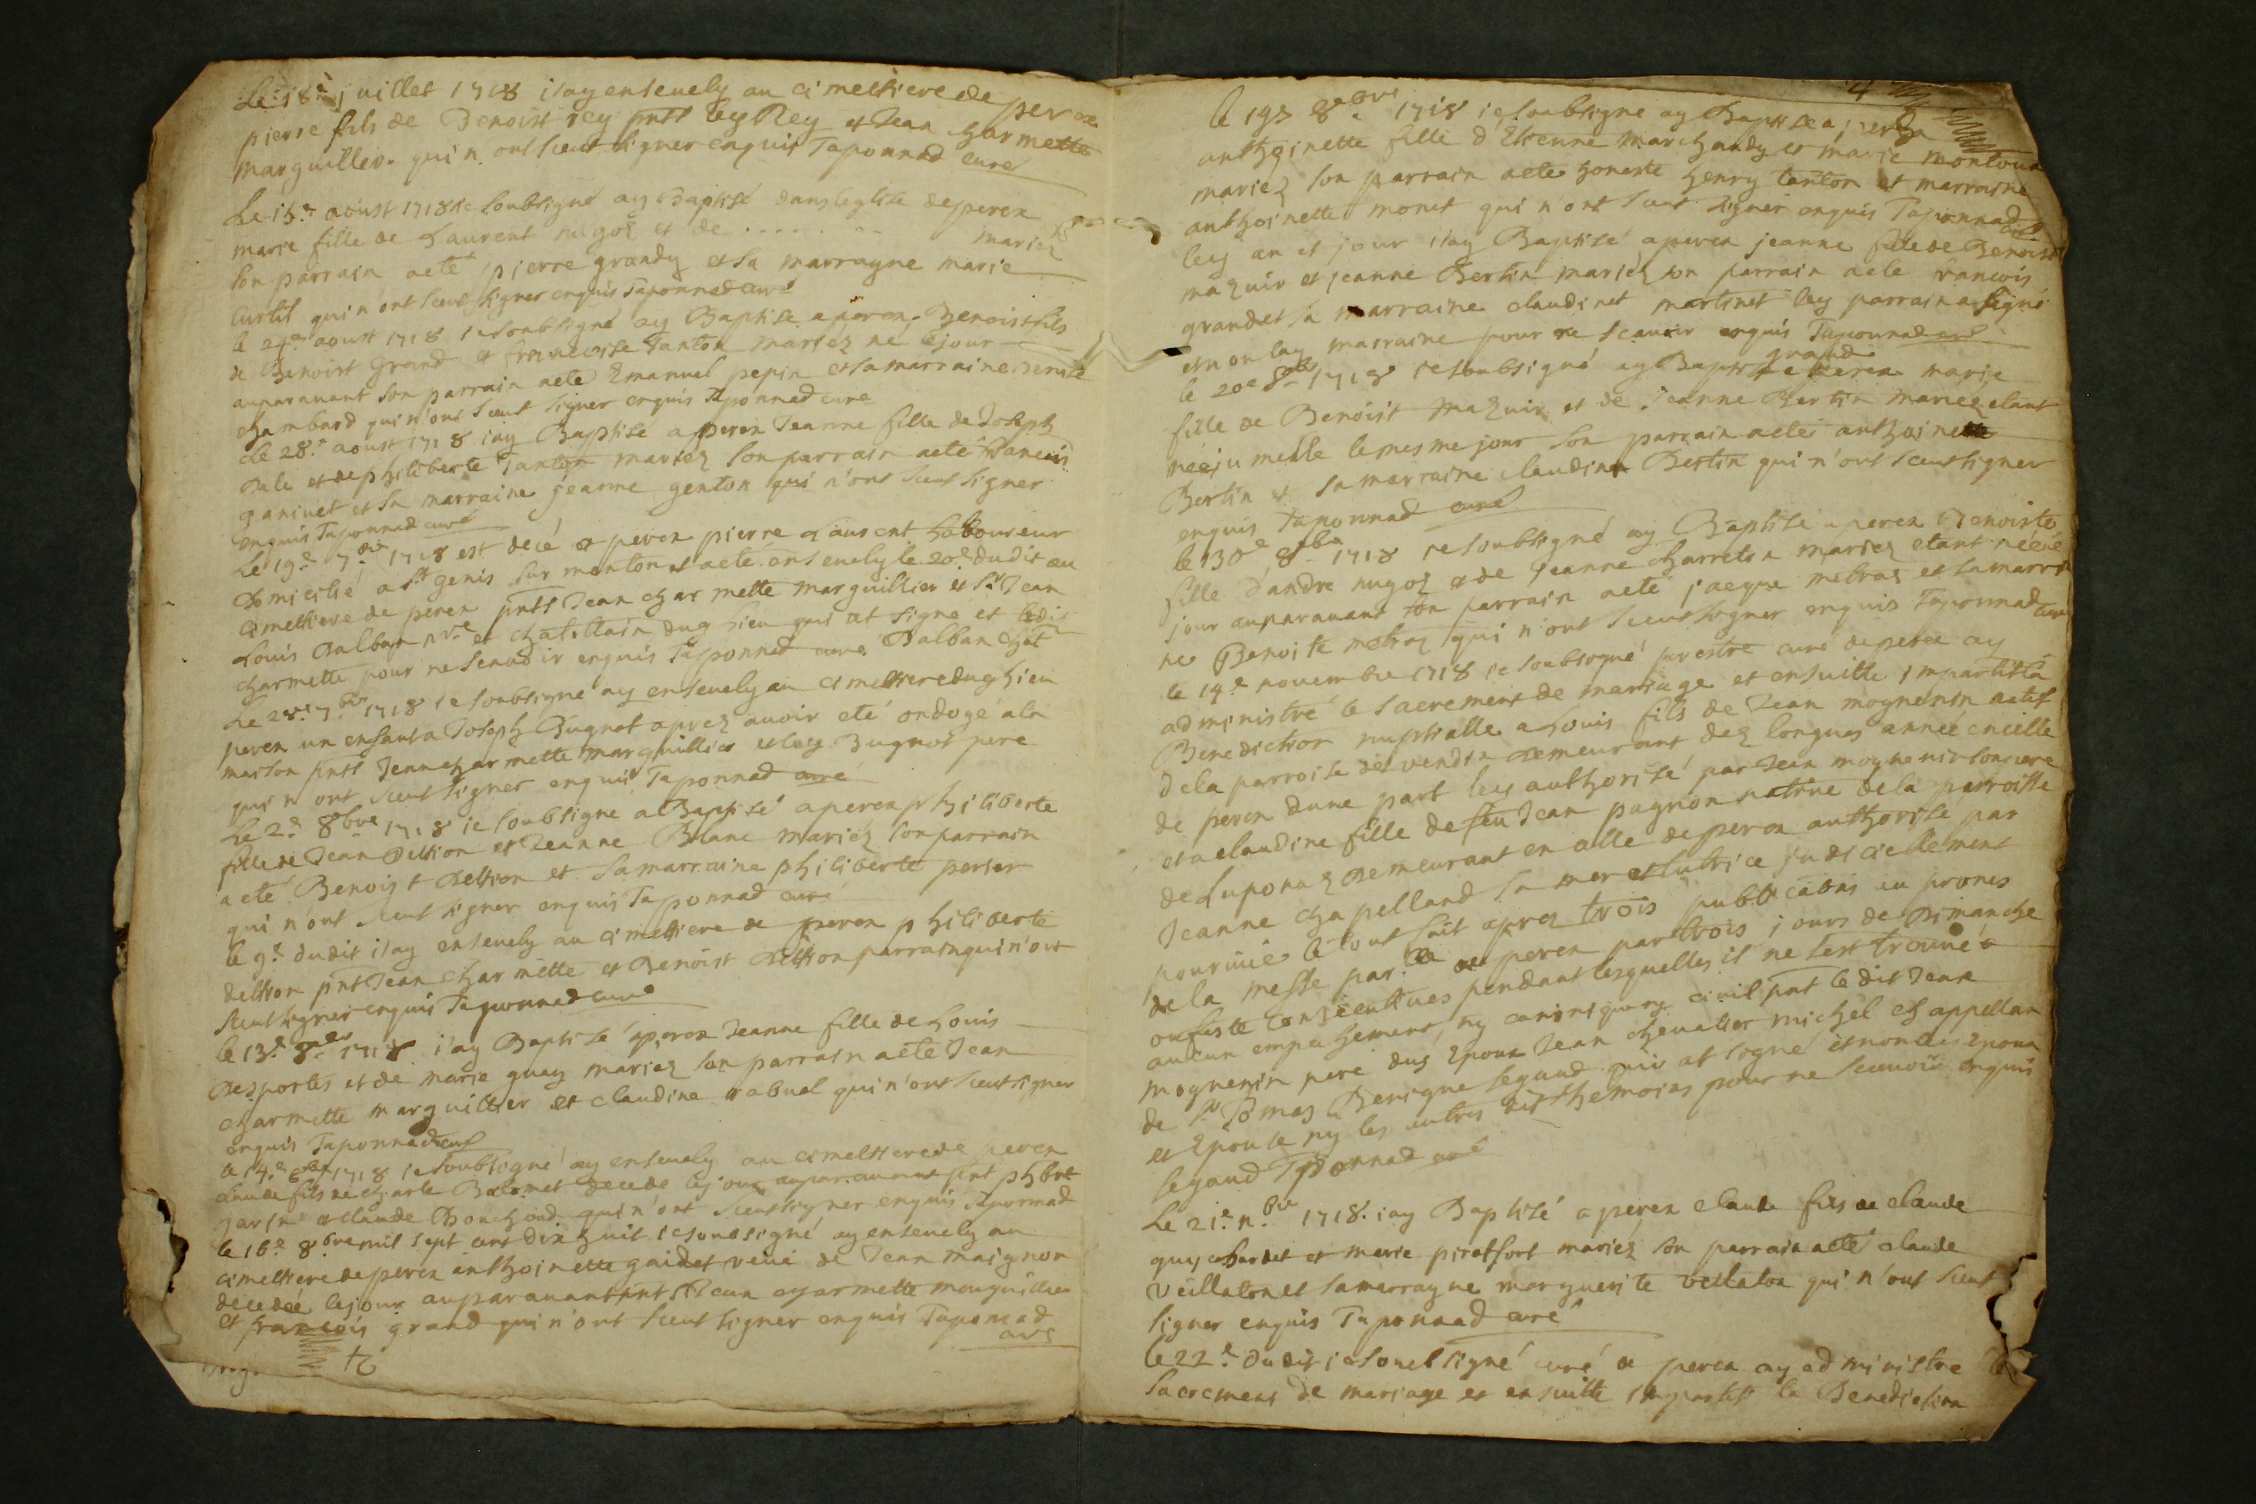 Le 18e juillet 1718 i'ay enseuely au cimettiere de peron
pierre fils de Benoist rey pntt ley Rey et Jean Charmette
marguillier qui n'ont sceut signer enquis Taponnad curé
Le 15e aoust 1718 ie soubsigné ay Baptisé dans leglise de peron
marie fille de Laurent nugoz et de . . . . . . . mariez
son parrain aeté pierre grandy et sa marrayne marie
Curtil qui n'ont sceut signer enquis Taponnad curé
le 24e aoust 1718 ie soubsigné ay Baptise a peron Benoist fils
de Benoist Grand et francoise Tanton mariez né le jour
auparauant son parrain aete Emanuel pepin et sa marraine Benoite
chambard qui n'ont sceut signer enquis Taponnad curé
Le 28e aoust 1718 i'ay Baptise a peron Jeanne fille de Joseph
Dale et de philiberte Tanton mariez son parrain aeté francois
ganivet et sa marraine jeanne genton qui n'ont sceut signer
enquis Taponnad curé
Le 19e 7bre 1718 est decé a peron pierre Laurent Laboureur
domicilié a st genis sur menton et aeté enseuely le 20e dudit au
cimettiere de peron pntt Jean charmette marguillier et sr Jean
Louis Dalban nre et chatellain dug lieu qui at signe et ledit
charmette pour ne scauoir enquis Taponnad curé Dalban chat
Le 28e 7bre 1718 ie soubsigné ay enseuely au cimettiere dug lieu
peron un enfant a Joseph Bugnot aprez auoir eté ondoyé a la
maison pntt Jean charmette marguillier et ley Bugnot pere
qui n'ont sceut signer enquis Taponnad curé
Le 2e 8bre 1718 ie soubsigne a Baptisé a peron philiberte
fille de Jean Deltion et Jeanne Blanc mariez son parrain
aeté Benoist Deltion et sa marraine philiberte perier
qui n'ont sceut signer enquis Taponnad curé
le 9e dudit i'ay enseuely au cimettiere de peron philiberte
deltion pnt Jean charmette et Benoist Deltion parrain qui n'ont
sceut signer enquis Taponnad curé
le 13e 8bre 1718 i'ay Baptisé a peron Jeanne fille de Louis
Desportes et de marie guay mariez son parrain aeté Jean
charmette marguillier et claudine rabuel qui n'ont sceut signer
enquis Taponnad curé
le 14e 8bre 1718 ie soubsigné ay enseuely au cimettiere de peron
Claude fils de charle Balomet decede le jour auparauant pnt phbrt
Jarin et claude Bouchoud qui n'ont sceut signer enquis Taponnad
le 16e 8bre mil sept cent dix huit ie soubsigné ay enseuely au
cimettiere de peron anthoinette gaidet veuë de Jean maignon
decedeé le jour auparauant pnt Jean charmette marguillier
et francois grand qui n'ont sceut signer enquis Taponnad
curé
4
le 19e 8bre 1718 ie soubsigne ay Baptise a peron
anthoinette fille d'Etienne marchandy et marie montoux
mariez son parrain aeté honeste henry tanton et marraine
anthoinette monet qui n'ont sceut signer enquis Taponnad curé
ley an et jour i'ay Baptisé a peron jeanne fille de Benoist
mazuir et jeanne Bertin mariez son parrain aeté francois
grandet sa marraine claudinet martinet ley parrain a signé
et non lay marraine pour ne scauoir enquis Taponnad curé
grand
le 20e 8bre 1718 ie soubsigné ay Baptise a peron marie
fille de Benoist mazuir et de Jeanne Bertin mariez etant
neé jumelle le mesme jour son parrain aeté anthoinette
Bertin et sa marraine claudine Bertin qui n'ont sceut signer
enquis Taponnad curé
le 30e 8bre 1718 ie soubsigné ay Baptisé a peron Benoiste
fille d'andre nugoz et de Jeanne charreton mariez etant neé le
jour auparauant son parrain aeté jacque metraz et sa marrai
ne Benoite metraz qui n'ont sceut signer enquis Taponnad curé
le 14e novembre 1718 ie soubsigné prestre curé de peron ay
administré le sacrement de mariage et ensuitte impartit la
Benediction nuptialle a Louis fils de Jean mognenin natif
de la parroise de versdin demeurant dez longues année en celle
de peron dune part ley authorisé par Jean mognenin son pere
et a claudine fille de feu Jean pagnon natiue de la parroisse
de Luponaz demeurant en celle de peron authorise par
Jeanne chapelland sa mere et tutrice judiciellement
pouruuë le tout fait aprez trois publicaons au prones
de la messe par.lle de peron par trois jours de Dimanche
ou feste consecutiues pendant lesquelles il ne sest trouué
aucun empechement ny canonique ny ciuil pnt le dit Jean
mognenin pere dug Epoux Jean cheualier michel chappellan
de sr Tomas Benigne legaud qui at signé et non les Epoux
et Epouse ny les autres dits themoins pour ne sceuoir enquis
legaud Taponnad curé
Le 21e nbre 1718 i'ay Baptisé a peron claude fils de claude
guychardet et marie piratfort mariez son parrain aeté claude
veillaton et sa marrayne marguerite vellaton qui n'ont sceut
signer enquis Taponnad curé
le 22e dudit ie soubsigné curé de peron ay administré le
sacrement de mariage et ensuitte impartit la Benediction